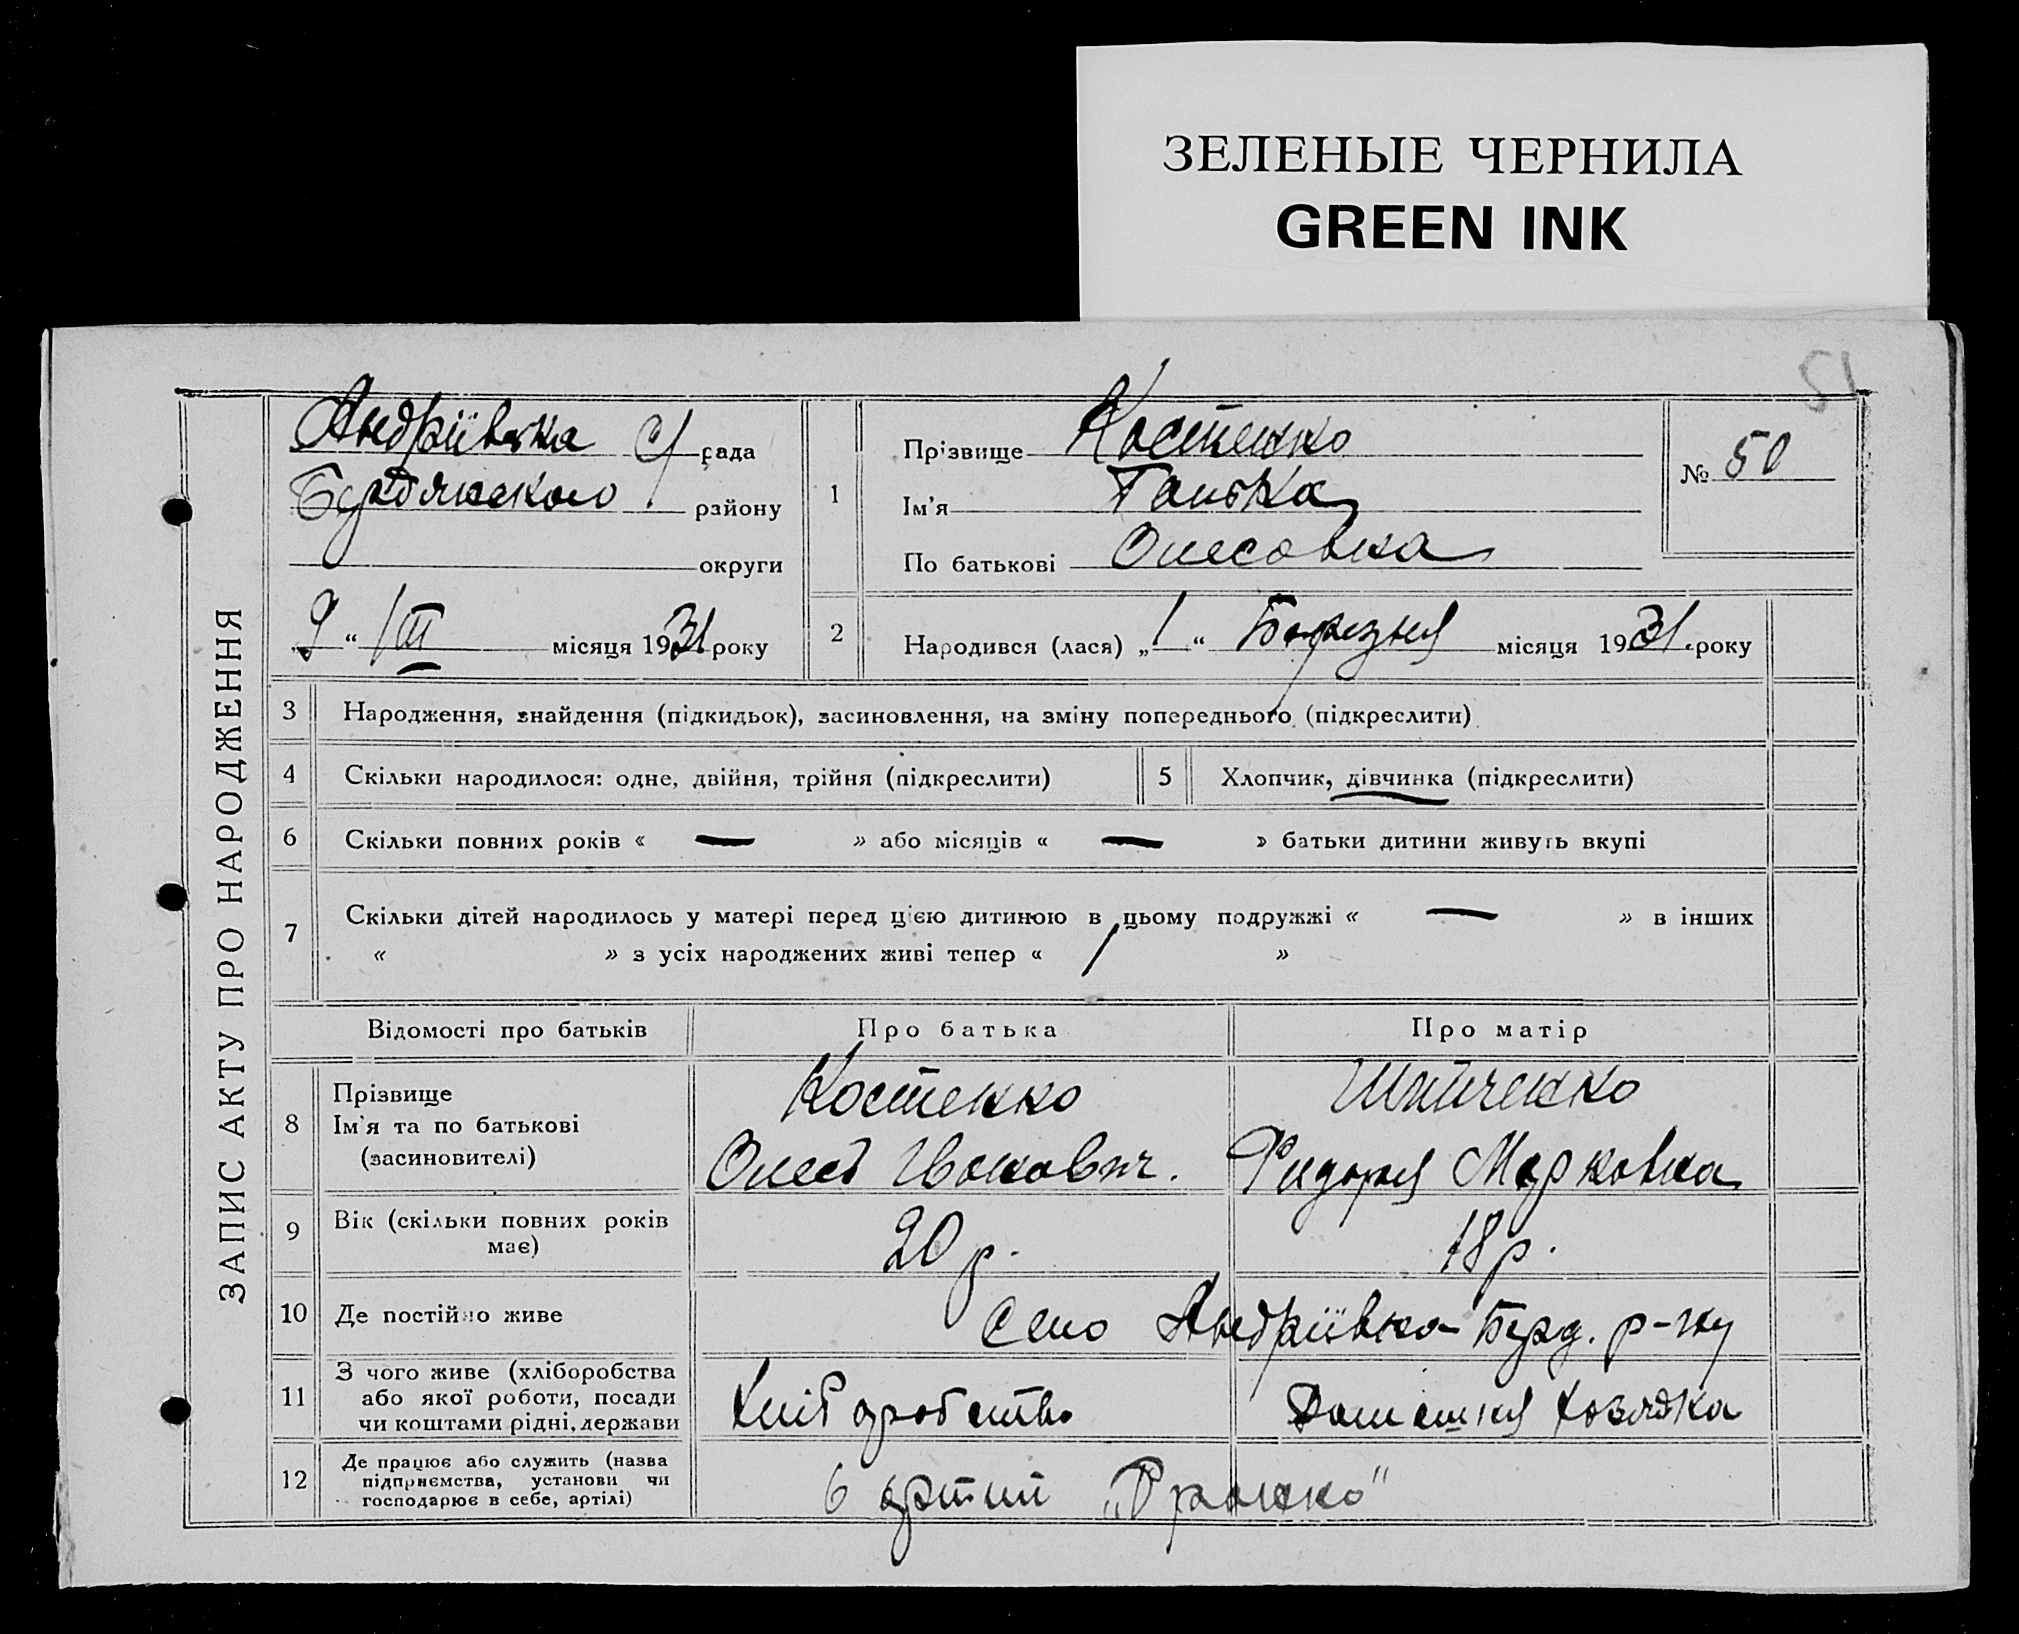 ЗЕЛЕНЫЕ ЧЕРНИЛА
GREEN INK
51
ЗАПИС АКТУ ПРО НАРОДЖЕННЯ
Андріївска С/рада
Бердянского району
округи
9 “ /III місяця 1931 року
1
Прізвище Костенко
Ім'я Ганька
По батькові Олесовна
№ 50
2 Народився (лася) „ 1 “ Березня місяця 1931 року
3 Народження, знайдення (підкидьок), засиновлення, на зміну попереднього (підкреслити)
4 Скільки народилося: одне, двійня, трійня (підкреслити) 5 Хлопчик, дівчинка (підкреслити)
6 Скільки повних років « — » або місяців « — » батьки дитини живуть вкупі
7 Скільки дітей народилось у матері перед цією дитиною в цьому подружжі « — » в інших
« » з усіх народжених живі тепер « / »
Відомості про батьків Про батька Про матір
8 Прізвище
Ім'я та по батькові
(засиновителі)
Костенко
Олесь Іванович.
Шпиченко
Марковна
9 Вік (скільки повних років
має)
20 р. 18 р.
10 Де постійно живе Село Андріївка Берд. р-ну
11 З чого живе (хліборобства
або якої роботи, посади
чи коштами рідні, держави
Хліборобство Домашня хозяйка
12 Де працює або служить (назва
підприємства, установи чи
господарює в себе, артілі)
в артілі